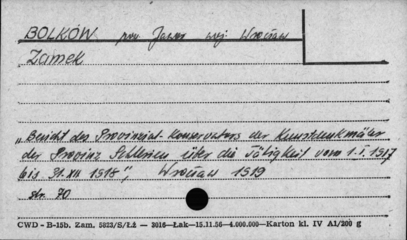 BOLKÓW pow. Jawor woj. Wrocław
Zamek
„Bericht des Provinzial-Konservators der Kunstdenkmäler
der Provinz Schlesien über die Tätigkeit vom 1.I.1917
bis 31.XII 1918", Wrocław 1919
str. 70
CWD - B-15b. Zam. 5823/S/Łż — 3016—Łak—15.11.56—4.000.000—Karton kl. IV A1/200 g